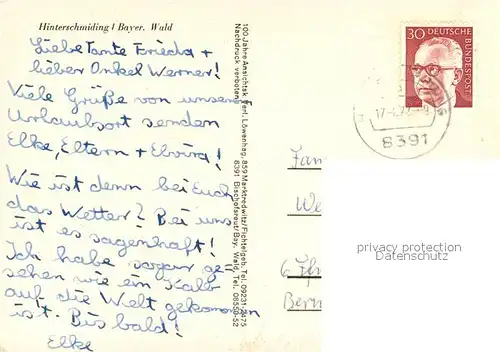 Hinterschmiding / Bayer. Wald
Liebe Tante Frieda +
lieber Onkel Werner!
Viele Grüße von unserem
Urlaubsort senden
Elke, Eltern +
Wie ist denn bei Euch
das Wetter? Bei uns
ist es sagenhaft!
Ich habe sogar ge-
sehen wie ein Kalb
auf die Welt gekommen
ist. Bis bald!
Elke
100 Jahre Ansichtsk. Verl. Löwenhag, 859 Marktredwitz/Fichtelgeb. Tel. 09231-2475
Nachdruck verboten 8391 Bischofsreut/Bay. Wald, Tel. 08550-52
30
DEUTSCHE
BUNDESPOST
8391
Fam
We
6 Ffm
Bern
privacy protection
Datenschutz